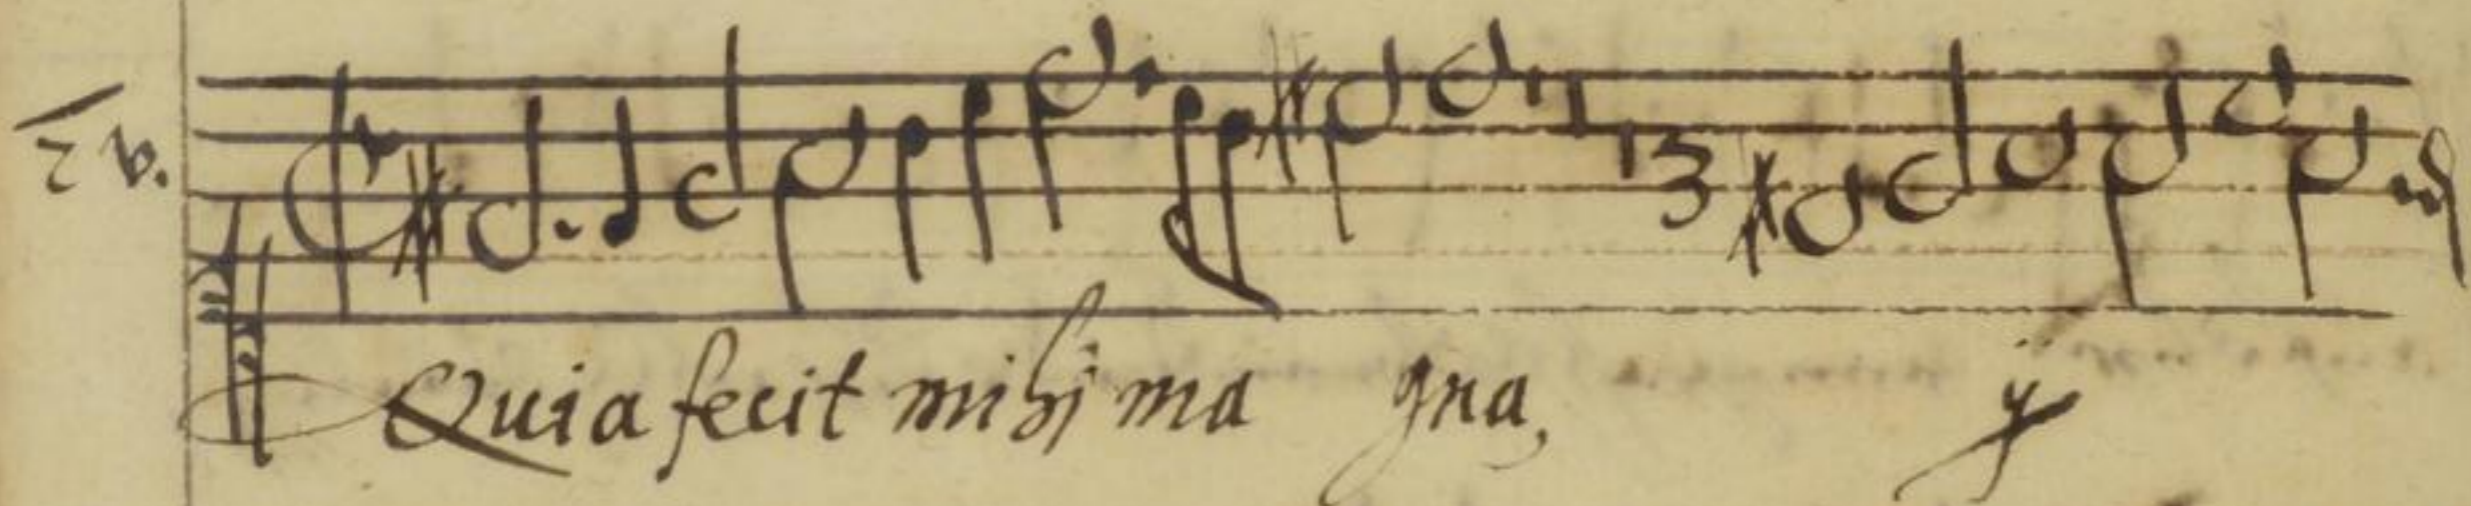 2 v.
3
Quia fecit mihj magna, ij